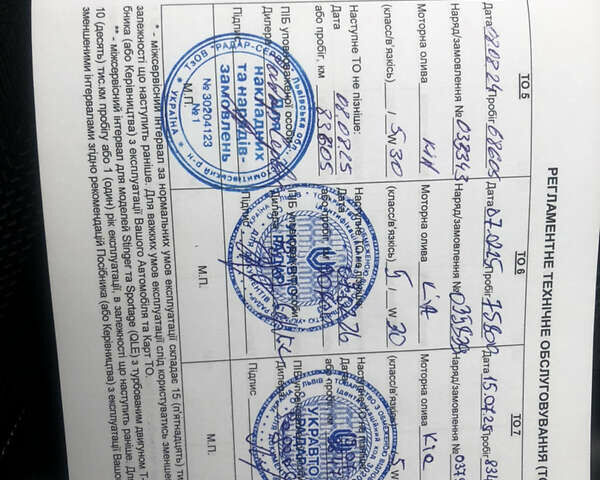 РЕГЛАМЕНТНЕ ТЕХНІЧНЕ ОБСЛУГОВУВАННЯ (ТО
ТО 5
Дата 02.08.24 Пробіг 68605
Наряд/замовлення № 038343
Моторна олива KIA
(класс/в'язкісь) / 5 W 30
Наступне ТО не пізніше:
Дата 02.08.25
або пробіг, км 83605
ПІБ уповноваженої особи
Дилера
Підпис
М.П.
ТзОВ "РАДАР-СЕРВІС"
Львівська обл.
УКРАЇНА
№ 30204123
№1
накладних
та наряд-
замовлень
ТО 6
Дата 07.02.25 Пробіг 75808
Наряд/замовлення №
Моторна олива KIA
(класс/в'язкісь) 5 / W 30
Наступне ТО не пізніше:
Дата
або пробіг, км
ПІБ уповноваженої особи
Дилера
Підпис
М.П.
ТО 7
Дата 15.07.25 Пробіг 834
Наряд/замовлення № 0379
Моторна олива Kia
(класс/в'язкісь) 5
Наступне ТО не пізніше:
або пробіг
Дилера
Підпис
М.П.
УКРАВТО
* - міжсервісний інтервал за нормальних умов експлуатації складає 15 (п'ятнадцять) ти
залежності що наступить раніше. Для важких умов експлуатації слід користуватись зменше
бника (або Керівництва) з експлуатації Вашого Автомобіля та Карт ТО.
** - міжсервісний інтервал для моделей Stinger та Sportage (QLE) з турбованим двигуном T-
10 (десять) тис.км пробігу або 1 (один) рік експлуатації, в залежності що наступить раніше. Дл
зменшеними інтервалами згідно рекомендацій Посібника (або Керівництва) з експлуатації Вашо